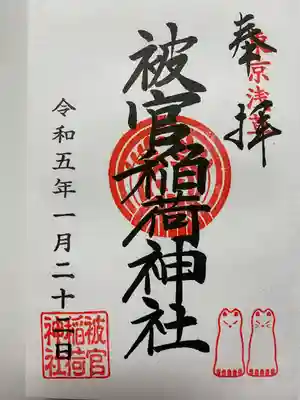 奉拝
東京浅草
被官稲荷神社
令和五年一月二十三日
被官
稲荷
神社